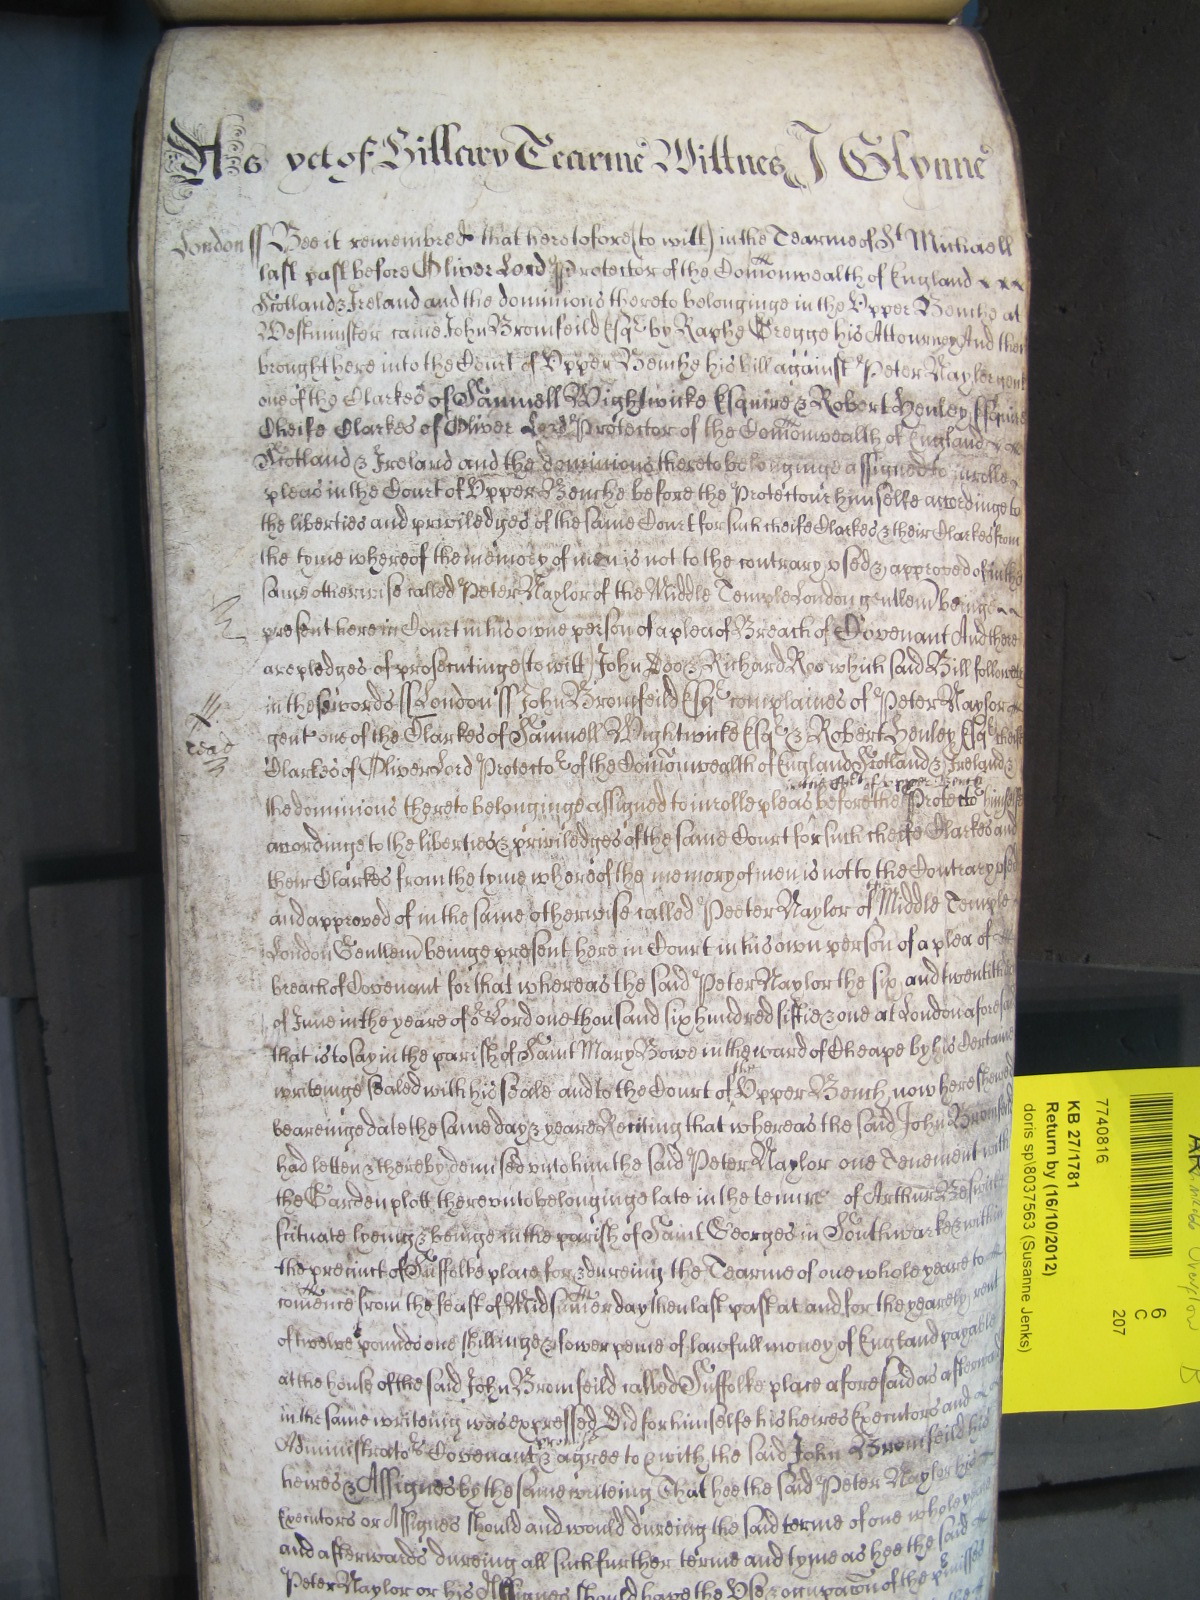 As yet of Hillary Tearme Wittnes J Glynne
London ss Bee it remembred that heretofore (to witt) in the Tearme of St Michaell
last past before Oliver Lord Protector of the Com̄onwealth of England
Scotland & Ireland and the dominions thereto belonginge in the Upper Benche at
Westminster came John Bromfeild Esqr by Raphe Gregge his Attourney And then
brought here into the Court of Upper Benche his bill against Peter Naylor gent
one of the Clarkes of Samuell Wightwicke Esquire & Robert Henley Esquire
Cheife Clarkes of Oliver Lord Protector of the Com̄onwealth of England
Scotland & Ireland and the dominions thereto belonginge assigned to inrolle
pleas in the Court of Upper Benche before the Protectour himselfe accordinge to
the liberties and priviledges of the same Court for such cheife Clarkes & their Clarkes from
the tyme whereof the memory of men is not to the contrary used & approved of in the
same otherwise called Peter Naylor of the Middle Temple London gentlem̄ beinge
present here in Court in his owne person of a plea of Breach of Covenant And there
are pledges of prosecutinge (to witt) John Doo & Richard Roo which said Bill followeth
in these words ss London ss John Bromfeild Esqr complaines of Peter Naylor
gent one of the Clarkes of Samuell Wightwicke Esqr & Robert Henley Esqr cheife
read
Clarkes of Oliver Lord Protector of the Com̄onwealth of England Scotland & Ireland &
the dominions thereto belonginge assigned to inrolle pleas before the Protector himselfe
accordinge to the liberties & priviledges of the same Court for such cheife Clarkes and
their Clarkes from the tyme whereof the memory of men is not to the Contrary used
and approved of in the same otherwise called Peeter Naylor of Middle Temple
London Gentlem̄ beinge present here in Court in his own person of a plea of
breach of Covenant for that whereas the said Peter Naylor the six and twentith
of June in the yeare of or Lord one thousand six hundred fiftie & one at London aforesaid
that is to say in the parish of Saint Mary Bowe in the ward of Cheape by his Certaine
writeinge sealed with his seale and to the Court of the Upper Bench now here shewed
beareinge date the same day & yeare Reciting that whereas the said John Bromfeild
had letten & thereby demised unto him the said Peter Naylor one Tenement with
the Garden plott thereunto belonginge late in the tenure of Arthur
scituate lyeing & beinge in the parish of Saint Georges in Southwarke & within
the precinct of Suffolke place for & dureing the Tearme of one whole yeare to
com̄ence from the feast of Midsom̄er day then last past at and for the yearely rent
of twelve pounds one shillinge & fower pence of lawfull money of England payable
at the house of the said John Bromfeild called Suffolke place aforesaid as afterward
in the same writeing was expressed Did for himselfe his heires Executors and
Administrators Covenant promise & agree to & with the said John Bromfeild his
heires & Assignes by the same writeing That hee the said Peter Naylor his
Executors or Assignes should and would dureing the said terme of one whole yeare
and afterwards dureing all such further terme and tyme as hee the said
Peter Naylor or his Assignes should have the Use & occupac̄on of the p̄misses
7740816
KB 27/1781
Return by (16/10/2012)
doris sp\8037563 (Susanne Jenks)
6
C
207